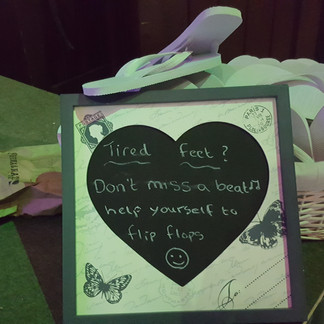 Tired feet?
Don't miss a beat♫
help yourself to
flip flops
PARIS
To: